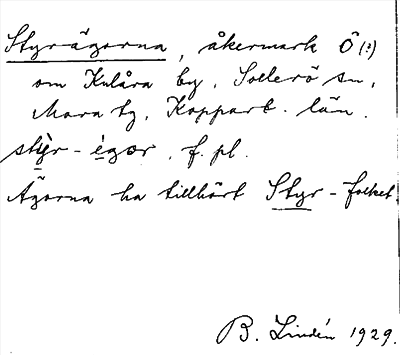 Styr-ägorna, åkermark Ö (?)
om Kulåra by, Sollerö sn,
Mora tg, Kopparb. län.
sty̆r-ègor, f. pl.
Ägorna ha tillhört Styr-folket
B. Lindén 1929.